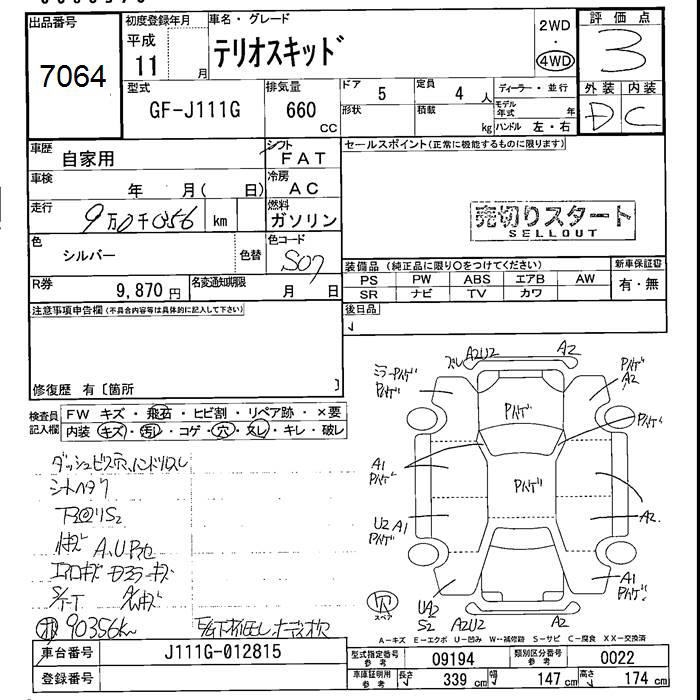 出品番号
7064
初度登録年月
平成
11 月
車名・グレード
テリオスキッド
2WD
・
4WD
評価点
3
外装 内装
D C
型式
GF-J111G
排気量
660
cc
ドア 5
形状
定員 4 人
積載 kg
ディーラー・並行
モデル年式 年
ハンドル 左・右
車歴
自家用
シフト
FAT
車検
年 月( 日)
冷房
AC
走行
9万0千056 km
燃料
ガソリン
色
シルバー
色替
色コード
S07
R券
9,870 円
名変通知期限
月 日
セールスポイント(正常に機能するものに限ります)
売切りスタート
SELLOUT
装備品 (純正品に限り○をつけてください)
PS PW ABS エアB AW
SR ナビ TV カワ
新車保証書
有・無
後日品
注意事項申告欄(不具合内容等は具体的に記入して下さい)
修復歴 有〔箇所 〕
検査員
記入欄
FW キズ・飛石・ヒビ割・リペア跡・×要
内装 キズ・汚レ・コゲ・穴・スレ・キレ・破レ
ダッシュビス穴、ハンドルスレ
シートヘタリ
A2U2 A2
ズレ
ミラーハゲ
ハゲ
ハゲ
A2
ハゲ
ハゲ
ハゲ
A1
ハゲ
U2 A1
ハゲ
A2
A1
ハゲ
UA2
S2
A2U2
A2
スペア
90356km
A-キズ E-エクボ U-凹み W-補修跡 S-サビ C-腐食 XX-交換済
車台番号
J111G-012815
登録番号
型式指定番号
参考
09194
類別区分番号
参考
0022
車庫証明用
参考
長さ 339 cm 幅 147 cm 高さ 174 cm